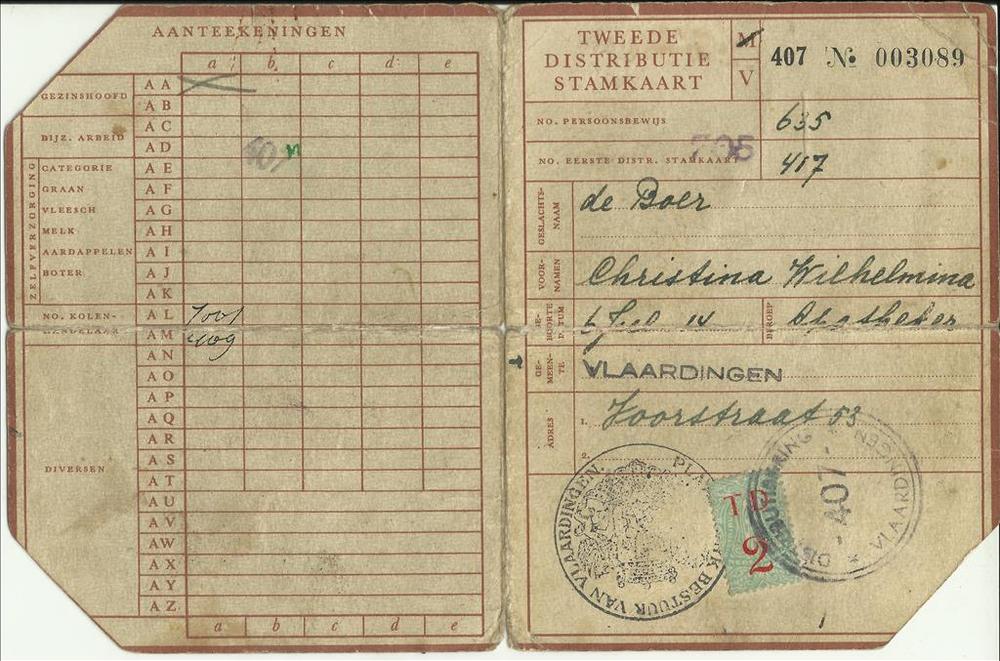 AANTEEKENINGEN
a b c d e
GEZINSHOOFD
AA
AB
BIJZ. ARBEID
AC
AD 407 N
ZELFVERZORGING
CATEGORIE AE
GRAAN AF
VLEESCH AG
MELK AH
AARDAPPELEN AI
BOTER AJ
AK
NO. KOLEN- AL 7001
HANDELAAR AM 409
AN
AO
AP
AQ
AR
DIVERSEN AS
AT
AU
AV
AW
AX
AY
AZ
a b c d e
TWEEDE
DISTRIBUTIE
STAMKAART
M
V
407 No. 003089
NO. PERSOONSBEWIJS 635
705
NO. EERSTE DISTR. STAMKAART 417
GESLACHTS-
NAAM
de Boer
VOOR-
NAMEN
Christina Wilhelmina
GE-
BOORTE
DATUM
14
BEROEP
GE-
MEEN-
TE
VLAARDINGEN
ADRES
1. Voorstraat 53
2.
BESTUUR VAN VLAARDINGEN.
TD
2
407
VLAARDINGEN